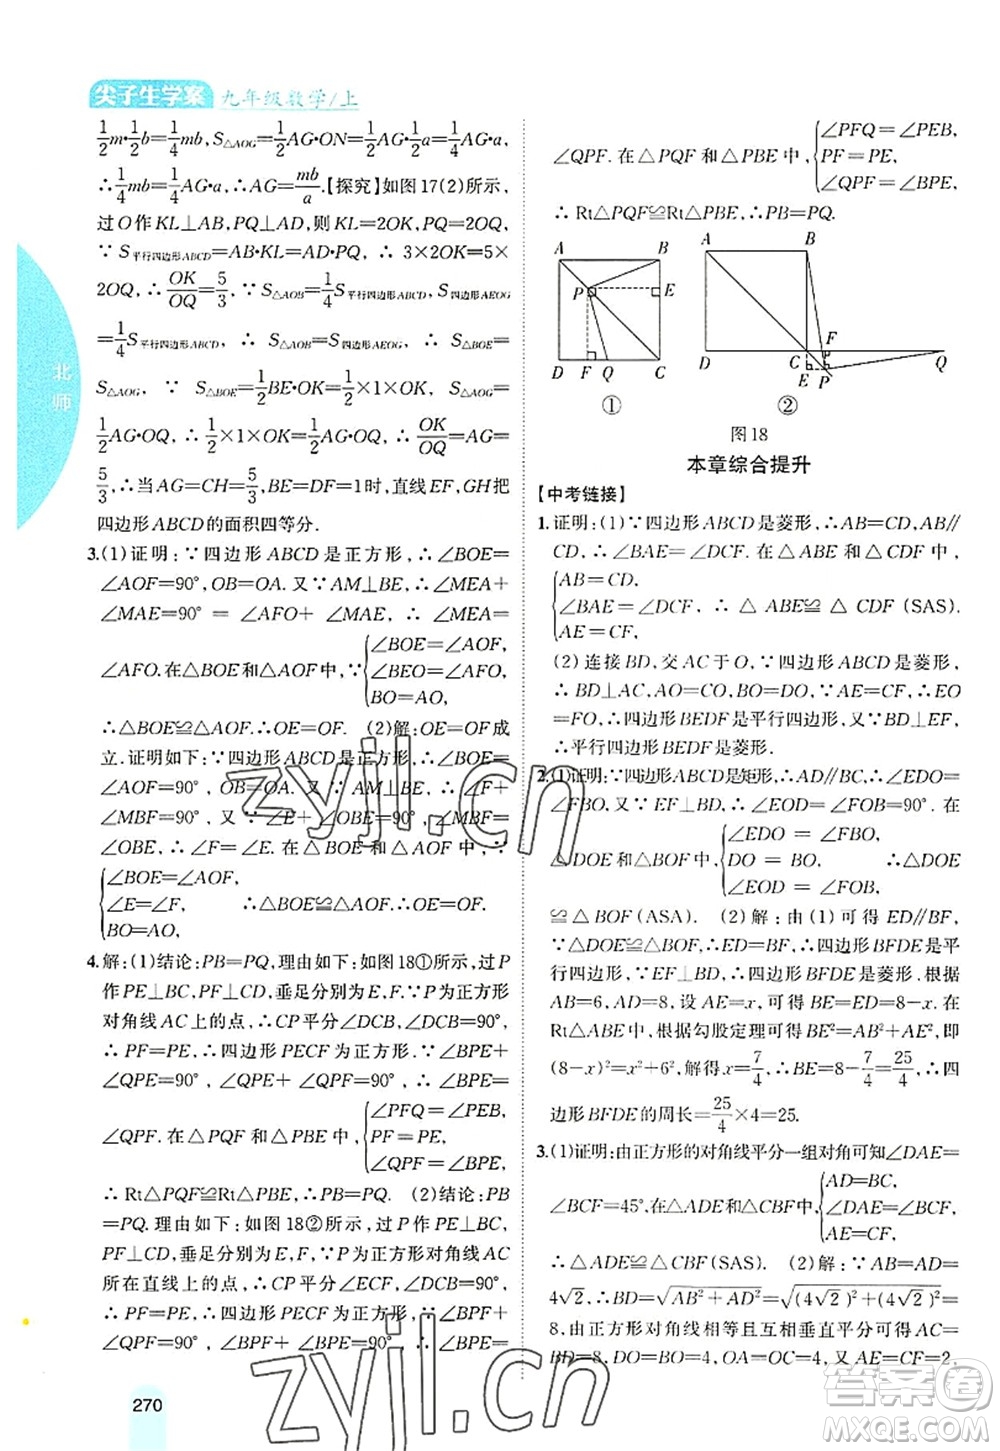 尖子生学案 九年级数学/上
$\frac{1}{2}m·\frac{1}{2}b=\frac{1}{4}mb,S_{△AOG}=\frac{1}{2}AG·ON=\frac{1}{2}AG·\frac{1}{2}a=\frac{1}{4}AG·a,$
$∴\frac{1}{4}mb=\frac{1}{4}AG·a,∴AG=\frac{mb}{a}.$【探究】如图17(2)所示,
过O作KL⊥AB,PQ⊥AD,则KL=2OK,PQ=2OQ.
∵$S_{平行四边形ABCD}$=AB·KL=AD·PQ,∴3×2OK=5×
2OQ,∴$\frac{OK}{OQ}=\frac{5}{3}$,∵$S_{△AOB}=\frac{1}{4}S_{平行四边形ABCD},S_{四边形AEOG}$
$=\frac{1}{4}S_{平行四边形ABCD},∴S_{△AOB}=S_{四边形AEOG},∴S_{△BOE}=$
$S_{△AOG},∵S_{△BOE}=\frac{1}{2}BE·OK=\frac{1}{2}×1×OK,S_{△AOG}=$
$\frac{1}{2}AG·OQ,∴\frac{1}{2}×1×OK=\frac{1}{2}AG·OQ,∴\frac{OK}{OQ}=AG=$
$\frac{5}{3}$,∴当AG=CH=$\frac{5}{3}$,BE=DF=1时,直线EF,GH把
四边形ABCD的面积四等分.
3.(1)证明:∵四边形ABCD是正方形,∴∠BOE=
∠AOF=90°,OB=OA.又∵AM⊥BE,∴∠MEA+
∠MAE=90°=∠AFO+∠MAE,∴∠MEA=
∠AFO.在△BOE和△AOF中,∵{∠BOE=∠AOF,
∠BEO=∠AFO,
BO=AO,
∴△BOE≌△AOF.∴OE=OF. (2)解:OE=OF成
立.证明如下:∵四边形ABCD是正方形,∴∠BOE=
∠AOF=90°,OB=OA.又∵AM⊥BE,∴∠F+
∠MBF=90°=∠E+∠OBE.又∵∠MBF=
∠OBE,∴∠F=∠E.在△BOE和△AOF中,∵
{∠BOE=∠AOF,
∠E=∠F, ∴△BOE≌△AOF.∴OE=OF.
BO=AO,
4.解:(1)结论:PB=PQ,理由如下:如图18①所示,过P
作PE⊥BC,PF⊥CD,垂足分别为E,F.∵P为正方形
对角线AC上的点,∴CP平分∠DCB,∠DCB=90°,
∴PF=PE,∴四边形PECF为正方形.∵∠BPE+
∠QPE=90°,∠QPE+∠QPF=90°,∴∠BPE=
∠QPF.在△PQF和△PBE中,{∠PFQ=∠PEB,
PF=PE,
∠QPF=∠BPE,
∴Rt△PQF≌Rt△PBE,∴PB=PQ. (2)结论:PB
=PQ.理由如下:如图18②所示,过P作PE⊥BC,
PF⊥CD,垂足分别为E,F,∵P为正方形对角线AC
所在直线上的点,∴CP平分∠ECF,∠ECF=90°,
∴PF=PE,∴四边形PECF为正方形,∵∠BPF+
∠QPF=90°,∠BPF+∠BPE=90°,∴∠BPE=
∠QPF.在△PQF和△PBE中,{∠PFQ=∠PEB,
PF=PE,
∠QPF=∠BPE,
∴Rt△PQF≌Rt△PBE,∴PB=PQ.
A B P E D F Q C
①
A B D C F E P Q
②
图18
本章综合提升
【中考链接】
1.证明:(1)∵四边形ABCD是菱形,∴AB=CD,AB∥
CD,∴∠BAE=∠DCF.在△ABE和△CDF中,
{AB=CD,
∠BAE=∠DCF,∴△ABE≌△CDF(SAS).
AE=CF,
(2)连接BD,交AC于O,∵四边形ABCD是菱形,
∴BD⊥AC,AO=CO,BO=DO.∵AE=CF,∴EO
=FO,∴四边形BEDF是平行四边形,∵BD⊥EF,
∴平行四边形BEDF是菱形.
2.(1)证明:∵四边形ABCD是矩形,∴AD∥BC,∴∠EDO=
∠FBO,又∵EF⊥BD,∴∠EOD=∠FOB=90°.在
△DOE和△BOF中,{∠EDO=∠FBO,
DO=BO, ∴△DOE
∠EOD=∠FOB,
≌△BOF(ASA). (2)解:由(1)可得ED∥BF,
△DOE≌△BOF,∴ED=BF,∴四边形BFDE是平
行四边形,∵EF⊥BD,∴四边形BFDE是菱形.根据
AB=6,AD=8,设AE=x,可得BE=ED=8-x.在
Rt△ABE中,根据勾股定理可得BE²=AB²+AE²,即
(8-x)²=x²+6²,解得x=$\frac{7}{4}$,∴BE=8-$\frac{7}{4}$=$\frac{25}{4}$,∴四
边形BFDE的周长=$\frac{25}{4}$×4=25.
3.(1)证明:由正方形的对角线平分一组对角可知∠DAE=
∠BCF=45°.在△ADE和△CBF中,{AD=BC,
∠DAE=∠BCF,
AE=CF,
∴△ADE≌△CBF(SAS). (2)解:∵AB=AD=
$4\sqrt{2}$,∴BD=$\sqrt{AB²+AD²}=\sqrt{(4\sqrt{2})²+(4\sqrt{2})²}$=
8,由正方形对角线相等且互相垂直平分可得AC=
BD=8,DO=BO=4,OA=OC=4,又AE=CF=2,
北师
270
zyjl.cn
zyjl.cn
答案圈
MXQE.COM